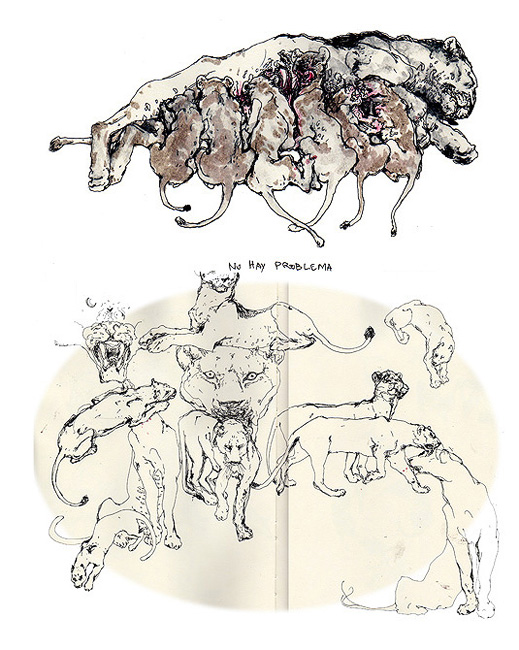 No HAY PROBLEMA